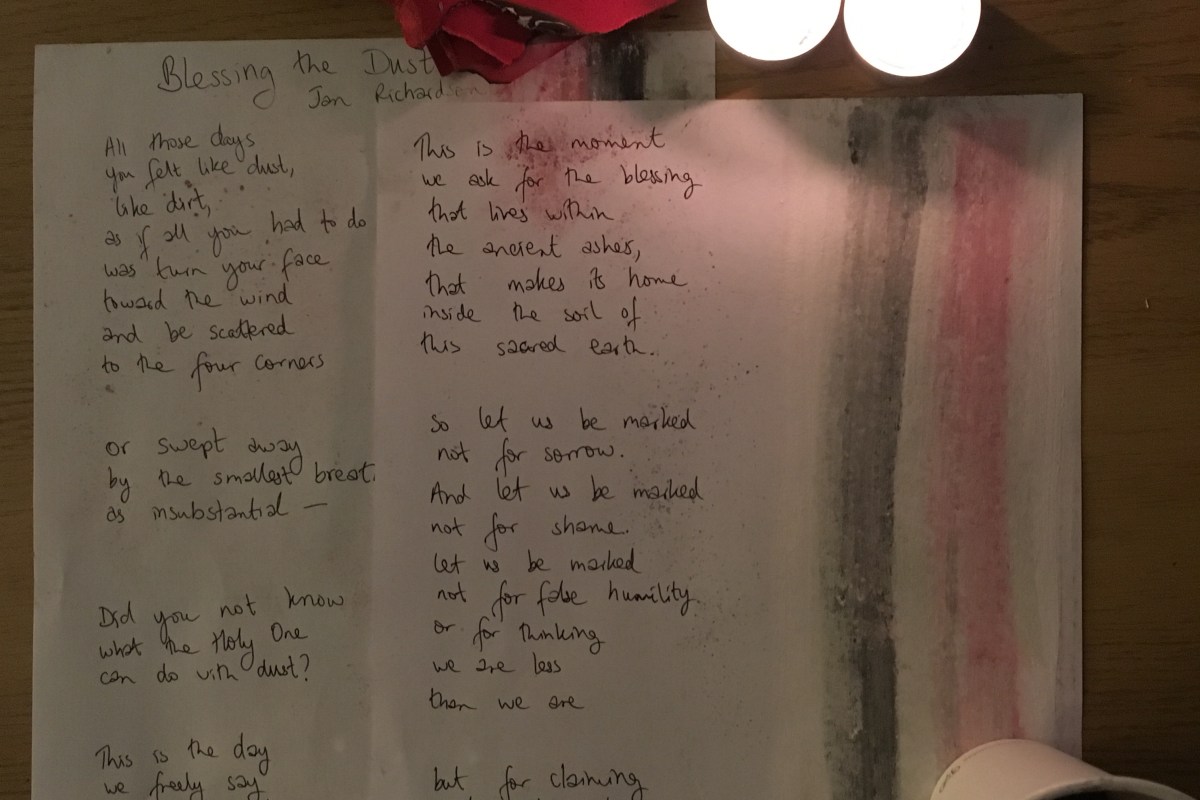 Blessing the Dust
Jan Richardson
All those days
you felt like dust,
like dirt,
as if all you had to do
was turn your face
toward the wind
and be scattered
to the four corners
or swept away
by the smallest breat
as insubstantial —
Did you not know
what the Holy One
can do with dust?
This is the day
we freely say
This is the moment
we ask for the blessing
that lives within
the ancient ashes,
that makes its home
inside the soil of
this sacred earth.
So let us be marked
not for sorrow.
And let us be marked
not for shame.
Let us be marked
not for false humility
or for thinking
we are less
than we are
but for claiming